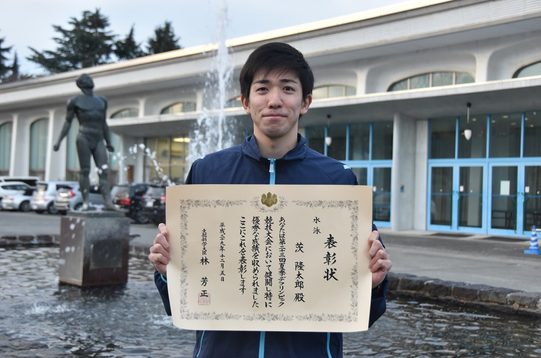 表彰状
水泳
茨 隆太郎 殿
あなたは第二十三回夏季デフリンピック
競技大会において健闘し特に
優秀な成績を収められました
ここにこれを表彰します
平成二十九年十二月五日
文部科学大臣 林 芳正